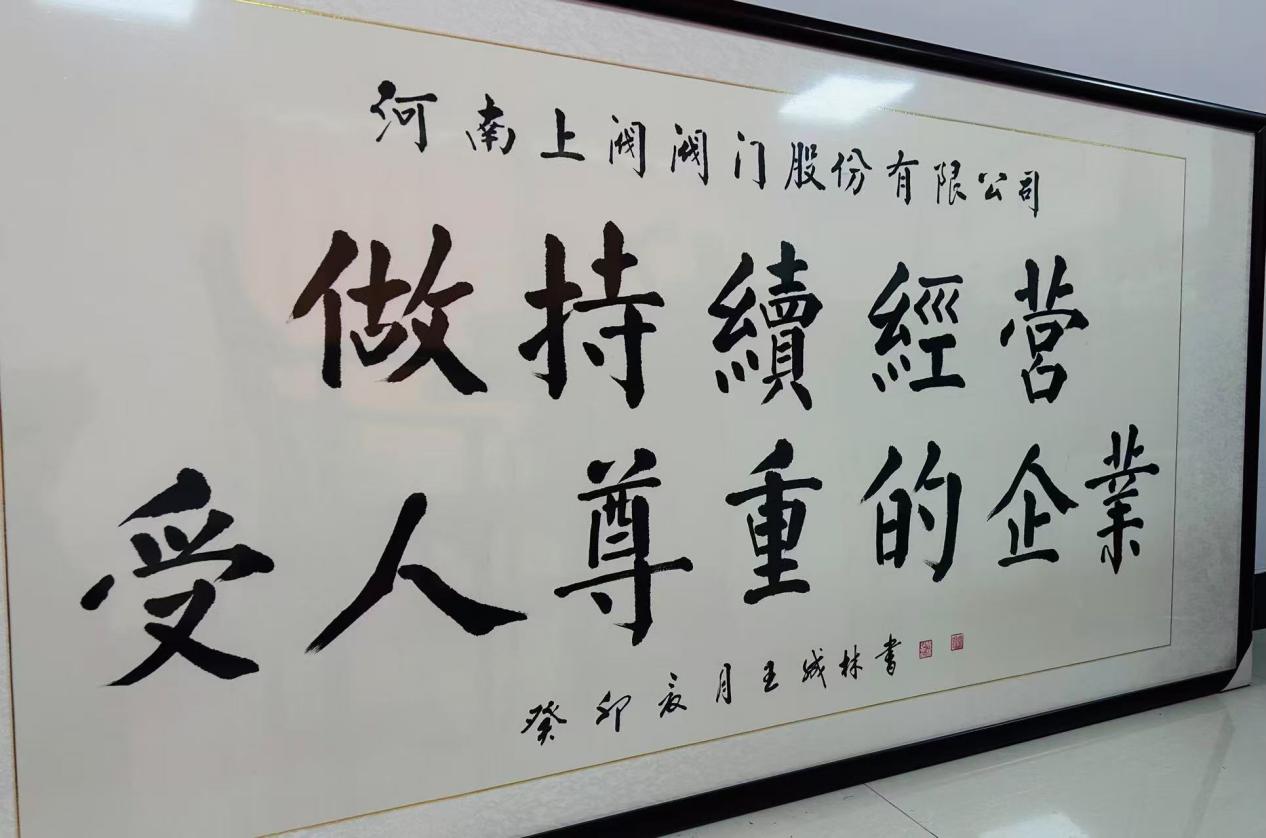 河南上阀阀门股份有限公司
做持續經营
受人尊重的企業
癸卯亥月王成林書